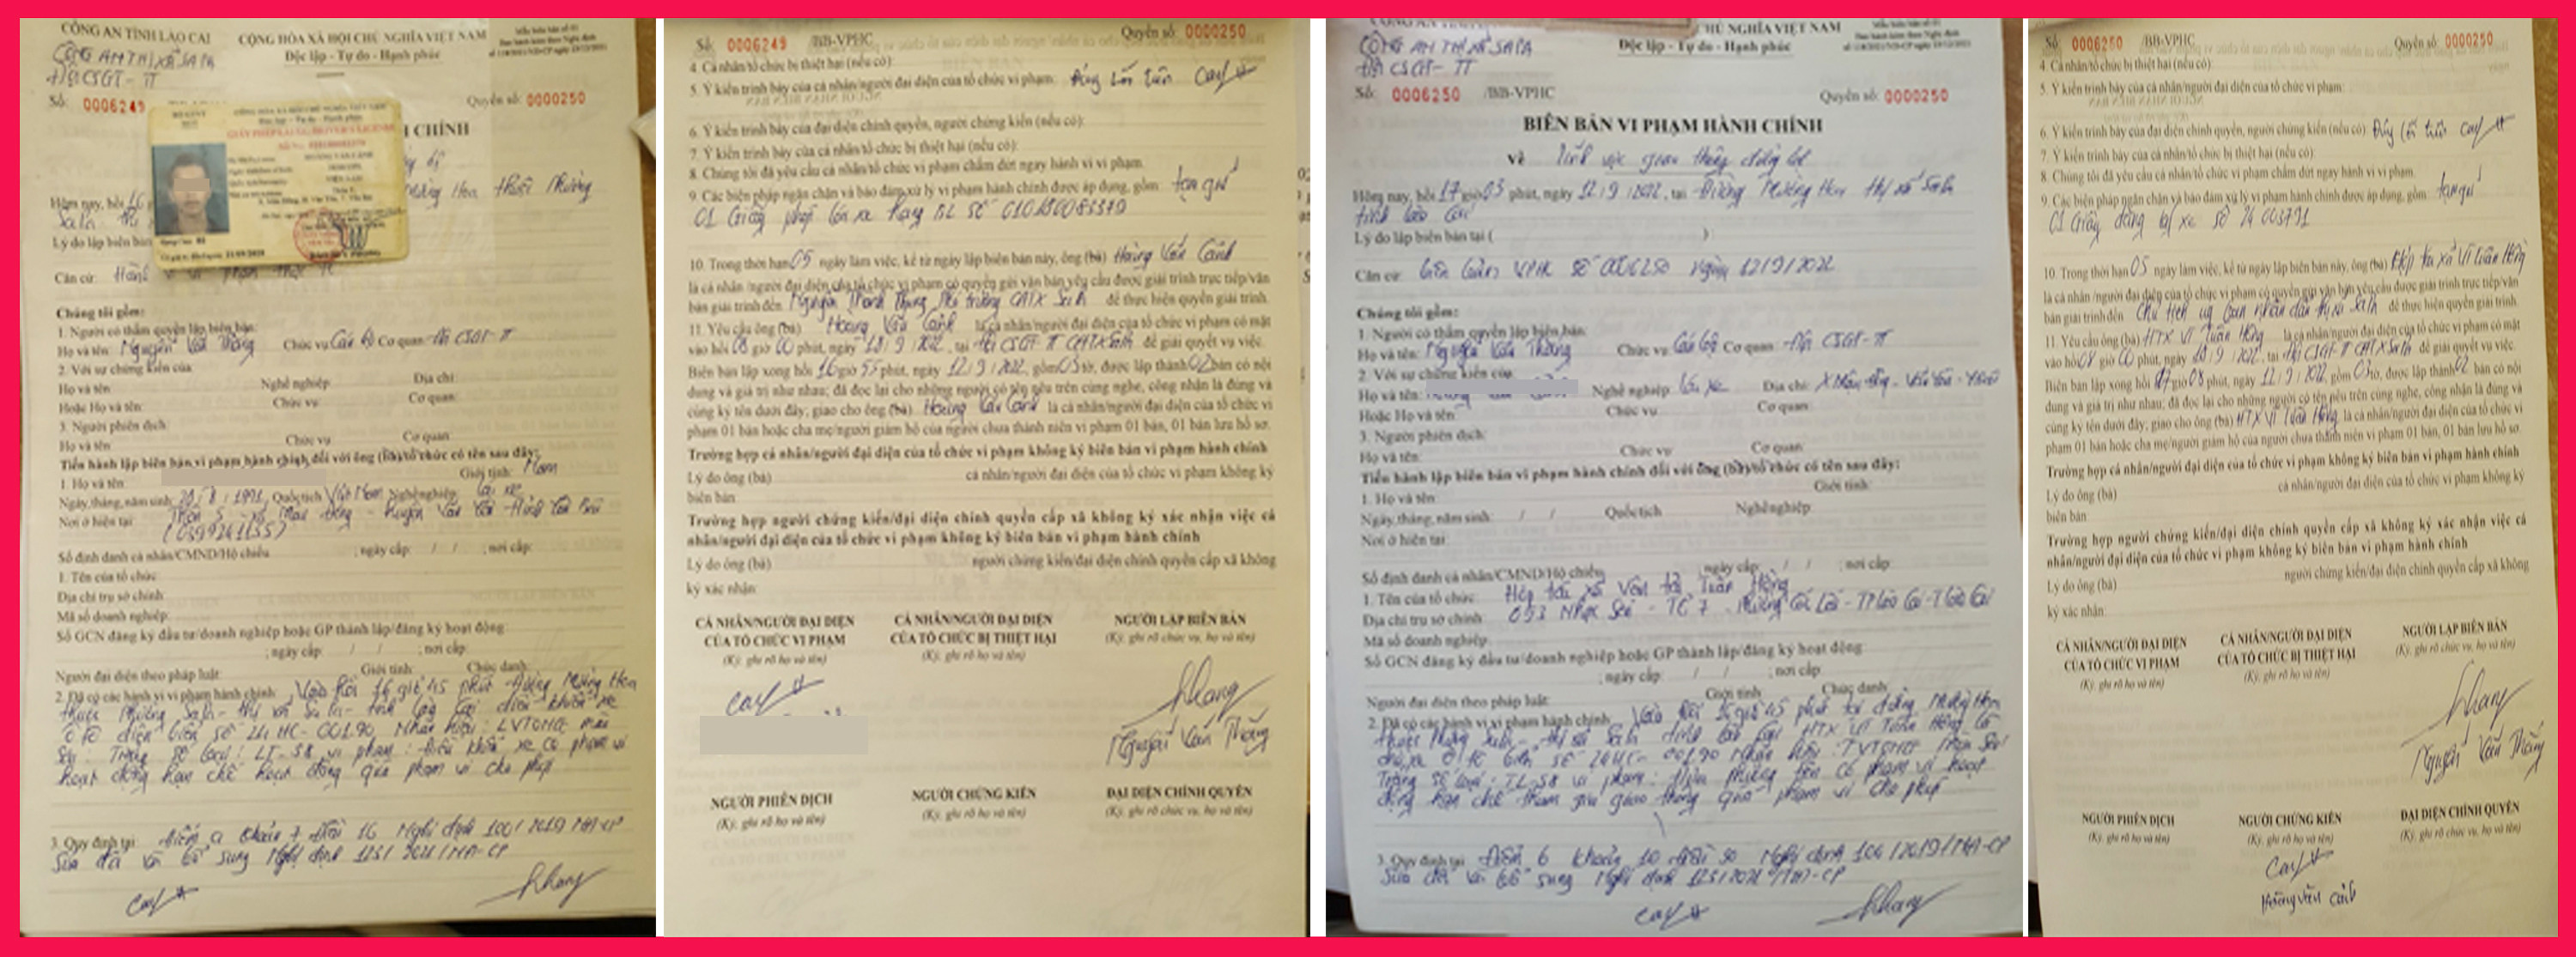 CÔNG AN TỈNH LÀO CAI
CÔNG AN THỊ XÃ SAPA
Đội CSGT-TT
CỘNG HÒA XÃ HỘI CHỦ NGHĨA VIỆT NAM
Độc lập - Tự do - Hạnh phúc
Số: 0006249
Quyển số: 0000250
GIẤY PHÉP LÁI XE/DRIVER'S LICENSE
H CHÍNH
Mường Hoa thuộc Phường
Hôm nay, hồi 16
Sa Pa
Lý do lập biên bản
Căn cứ: Hành vi vi phạm
Chúng tôi gồm:
1. Người có thẩm quyền lập biên bản:
Họ và tên: Nguyễn Văn Thắng Chức vụ: Cán bộ Cơ quan: Đội CSGT-TT
2. Với sự chứng kiến của:
Họ và tên: Nghề nghiệp: Địa chỉ:
Hoặc Họ và tên: Chức vụ: Cơ quan:
3. Người phiên dịch:
Họ và tên: Chức vụ: Cơ quan:
Tiến hành lập biên bản vi phạm hành chính đối với ông (bà)/tổ chức có tên sau đây:
1. Họ và tên: Giới tính: Nam
Ngày, tháng, năm sinh: / 8 / 1991 Quốc tịch: Việt Nam Nghề nghiệp: Lái xe
Nơi ở hiện tại: Thôn 5 - xã Mậu Đông - huyện Văn Yên - tỉnh Yên Bái
Số định danh cá nhân/CMND/Hộ chiếu: ; ngày cấp: / / ; nơi cấp:
1. Tên của tổ chức:
Địa chỉ trụ sở chính:
Mã số doanh nghiệp:
Số GCN đăng ký đầu tư/doanh nghiệp hoặc GP thành lập/đăng ký hoạt động:
; ngày cấp: / / ; nơi cấp:
Người đại diện theo pháp luật: Giới tính: Chức danh:
2. Đã có các hành vi vi phạm hành chính: Vào hồi 16 giờ 45 phút Đường Mường Hoa
thuộc Phường Sa Pa - thị xã Sa Pa - tỉnh Lào Cai điều khiển xe
ô tô điện biển số 24HC-00190 Nhãn hiệu: LVTONG màu
Sơn: Trắng số loại: LT-S8 vi phạm: Điều khiển xe có phạm vi
hoạt động hạn chế hoạt động quá phạm vi cho phép
3. Quy định tại: Điểm a khoản 7 Điều 16 Nghị định 100/2019/NĐ-CP
Sửa đổi và bổ sung Nghị định 123/2021/NĐ-CP
Số: 0006249 /BB-VPHC
Quyển số: 0000250
4. Cá nhân/tổ chức bị thiệt hại (nếu có):
5. Ý kiến trình bày của cá nhân/người đại diện của tổ chức vi phạm: Đúng lỗi trên
6. Ý kiến trình bày của đại diện chính quyền, người chứng kiến (nếu có):
7. Ý kiến trình bày của cá nhân/tổ chức bị thiệt hại (nếu có):
8. Chúng tôi đã yêu cầu cá nhân/tổ chức vi phạm chấm dứt ngay hành vi vi phạm.
9. Các biện pháp ngăn chặn và bảo đảm xử lý vi phạm hành chính được áp dụng, gồm: tạm giữ
01 Giấy phép lái xe hạng B2 số
10. Trong thời hạn 05 ngày làm việc, kể từ ngày lập biên bản này, ông (bà) Hoàng Văn Cảnh
là cá nhân /người đại diện của tổ chức vi phạm có quyền gửi văn bản yêu cầu được giải trình trực tiếp/văn
bản giải trình đến Nguyễn Thành Trung Phó trưởng CATX Sa Pa để thực hiện quyền giải trình.
11. Yêu cầu ông (bà) Hoàng Văn Cảnh là cá nhân/người đại diện của tổ chức vi phạm có mặt
vào hồi 08 giờ 00 phút, ngày / 9 / 2022, tại Đội CSGT-TT CATX Sapa để giải quyết vụ việc.
Biên bản lập xong hồi 16 giờ 55 phút, ngày 12/9/2022, gồm 03 tờ, được lập thành 02 bản có nội
dung và giá trị như nhau; đã đọc lại cho những người có tên nêu trên cùng nghe, công nhận là đúng và
cùng ký tên dưới đây; giao cho ông (bà) Hoàng Văn Cảnh là cá nhân/người đại diện của tổ chức vi
phạm 01 bản hoặc cha mẹ/người giám hộ của người chưa thành niên vi phạm 01 bản, 01 bản lưu hồ sơ.
Trường hợp cá nhân/người đại diện của tổ chức vi phạm không ký biên bản vi phạm hành chính
Lý do ông (bà) cá nhân/người đại diện của tổ chức vi phạm không ký
biên bản:
Trường hợp người chứng kiến/đại diện chính quyền cấp xã không ký xác nhận việc cá
nhân/người đại diện của tổ chức vi phạm không ký biên bản vi phạm hành chính
Lý do ông (bà) người chứng kiến/đại diện chính quyền cấp xã không
ký xác nhận:
CÁ NHÂN/NGƯỜI ĐẠI DIỆN CÁ NHÂN/NGƯỜI ĐẠI DIỆN NGƯỜI LẬP BIÊN BẢN
CỦA TỔ CHỨC VI PHẠM CỦA TỔ CHỨC BỊ THIỆT HẠI (Ký, ghi rõ chức vụ, họ và tên)
(Ký, ghi rõ họ và tên) (Ký, ghi rõ họ và tên)
Nguyễn Văn Thắng
NGƯỜI PHIÊN DỊCH NGƯỜI CHỨNG KIẾN ĐẠI DIỆN CHÍNH QUYỀN
(Ký, ghi rõ họ và tên) (Ký, ghi rõ họ và tên) (Ký, ghi rõ chức vụ, họ và tên)
CÔNG AN THỊ XÃ SAPA
Đội CSGT-TT
CHỦ NGHĨA VIỆT NAM
Độc lập - Tự do - Hạnh phúc
Số: 0006250 /BB-VPHC
Quyển số: 0000250
BIÊN BẢN VI PHẠM HÀNH CHÍNH
Về lĩnh vực giao thông đường bộ
Hôm nay, hồi 17 giờ 03 phút, ngày 12/9/2022, tại Đường Mường Hoa thị xã Sapa
tỉnh Lào Cai
Lý do lập biên bản tại ( )
Căn cứ: biên bản VPHC số ngày 12/9/2022
Chúng tôi gồm:
1. Người có thẩm quyền lập biên bản:
Họ và tên: Nguyễn Văn Thắng Chức vụ: Cán bộ Cơ quan: Đội CSGT-TT
2. Với sự chứng kiến của:
Họ và tên: Nghề nghiệp: Lái xe Địa chỉ: X Mậu Đông - Văn Yên - Yên Bái
Hoặc Họ và tên: Chức vụ: Cơ quan:
3. Người phiên dịch:
Họ và tên: Chức vụ: Cơ quan:
Tiến hành lập biên bản vi phạm hành chính đối với ông (bà)/tổ chức có tên sau đây:
1. Họ và tên: Giới tính:
Ngày, tháng, năm sinh: / / Quốc tịch: Nghề nghiệp:
Nơi ở hiện tại:
Số định danh cá nhân/CMND/Hộ chiếu: ; ngày cấp: / / ; nơi cấp:
1. Tên của tổ chức: Hợp tác xã Vận tải Tuấn Hồng
Địa chỉ trụ sở chính: 053 Nhạc Sơn - Tổ 7 - Phường Cốc Lếu - TP Lào Cai - T Lào Cai
Mã số doanh nghiệp:
Số GCN đăng ký đầu tư/doanh nghiệp hoặc GP thành lập/đăng ký hoạt động:
; ngày cấp: / / ; nơi cấp:
Người đại diện theo pháp luật: Giới tính: Chức danh:
2. Đã có các hành vi vi phạm hành chính: Vào hồi 16 giờ 45 phút tại đường Mường Hoa
thuộc Phường Sa Pa, thị xã Sa Pa tỉnh Lào Cai HTX VT Tuấn Hồng là
chủ xe ô tô biển số 24HC-00190 Nhãn hiệu: Màu Sơn:
Trắng số loại: vi phạm: Đưa phương tiện có phạm vi hoạt
động hạn chế tham gia giao thông quá phạm vi cho phép
3. Quy định tại: Điểm khoản 10 Điều 30 Nghị định 100/2019/NĐ-CP
Sửa đổi và bổ sung Nghị định 123/2021/NĐ-CP
Số: 0006250 /BB-VPHC
Quyển số: 0000250
4. Cá nhân/tổ chức bị thiệt hại (nếu có):
5. Ý kiến trình bày của cá nhân/người đại diện của tổ chức vi phạm:
6. Ý kiến trình bày của đại diện chính quyền, người chứng kiến (nếu có): Đúng lỗi trên
7. Ý kiến trình bày của cá nhân/tổ chức bị thiệt hại (nếu có):
8. Chúng tôi đã yêu cầu cá nhân/tổ chức vi phạm chấm dứt ngay hành vi vi phạm.
9. Các biện pháp ngăn chặn và bảo đảm xử lý vi phạm hành chính được áp dụng, gồm: tạm giữ
01 Giấy đăng ký xe số 24 003791
10. Trong thời hạn 05 ngày làm việc, kể từ ngày lập biên bản này, ông (bà) Hợp tác xã VT Tuấn Hồng
là cá nhân /người đại diện của tổ chức vi phạm có quyền gửi văn bản yêu cầu được giải trình trực tiếp/văn
bản giải trình đến Chủ tịch uỷ ban nhân dân thị xã SaPa để thực hiện quyền giải trình.
11. Yêu cầu ông (bà) HTX VT Tuấn Hồng là cá nhân/người đại diện của tổ chức vi phạm có mặt
vào hồi 08 giờ 00 phút, ngày / 9 / 2022, tại Đội CSGT-TT CATX SaPa để giải quyết vụ việc.
Biên bản lập xong hồi 17 giờ 08 phút, ngày 12/9/2022, gồm 03 tờ, được lập thành 02 bản có nội
dung và giá trị như nhau; đã đọc lại cho những người có tên nêu trên cùng nghe, công nhận là đúng và
cùng ký tên dưới đây; giao cho ông (bà) HTX VT Tuấn Hồng là cá nhân/người đại diện của tổ chức vi
phạm 01 bản hoặc cha mẹ/người giám hộ của người chưa thành niên vi phạm 01 bản, 01 bản lưu hồ sơ.
Trường hợp cá nhân/người đại diện của tổ chức vi phạm không ký biên bản vi phạm hành chính
Lý do ông (bà) cá nhân/người đại diện của tổ chức vi phạm không ký
biên bản:
Trường hợp người chứng kiến/đại diện chính quyền cấp xã không ký xác nhận việc cá
nhân/người đại diện của tổ chức vi phạm không ký biên bản vi phạm hành chính
Lý do ông (bà) người chứng kiến/đại diện chính quyền cấp xã không
ký xác nhận:
CÁ NHÂN/NGƯỜI ĐẠI DIỆN CÁ NHÂN/NGƯỜI ĐẠI DIỆN NGƯỜI LẬP BIÊN BẢN
CỦA TỔ CHỨC VI PHẠM CỦA TỔ CHỨC BỊ THIỆT HẠI (Ký, ghi rõ chức vụ, họ và tên)
(Ký, ghi rõ họ và tên) (Ký, ghi rõ họ và tên)
Nguyễn Văn Thắng
NGƯỜI PHIÊN DỊCH NGƯỜI CHỨNG KIẾN ĐẠI DIỆN CHÍNH QUYỀN
(Ký, ghi rõ họ và tên) (Ký, ghi rõ họ và tên) (Ký, ghi rõ chức vụ, họ và tên)
Hoàng Văn Cảnh